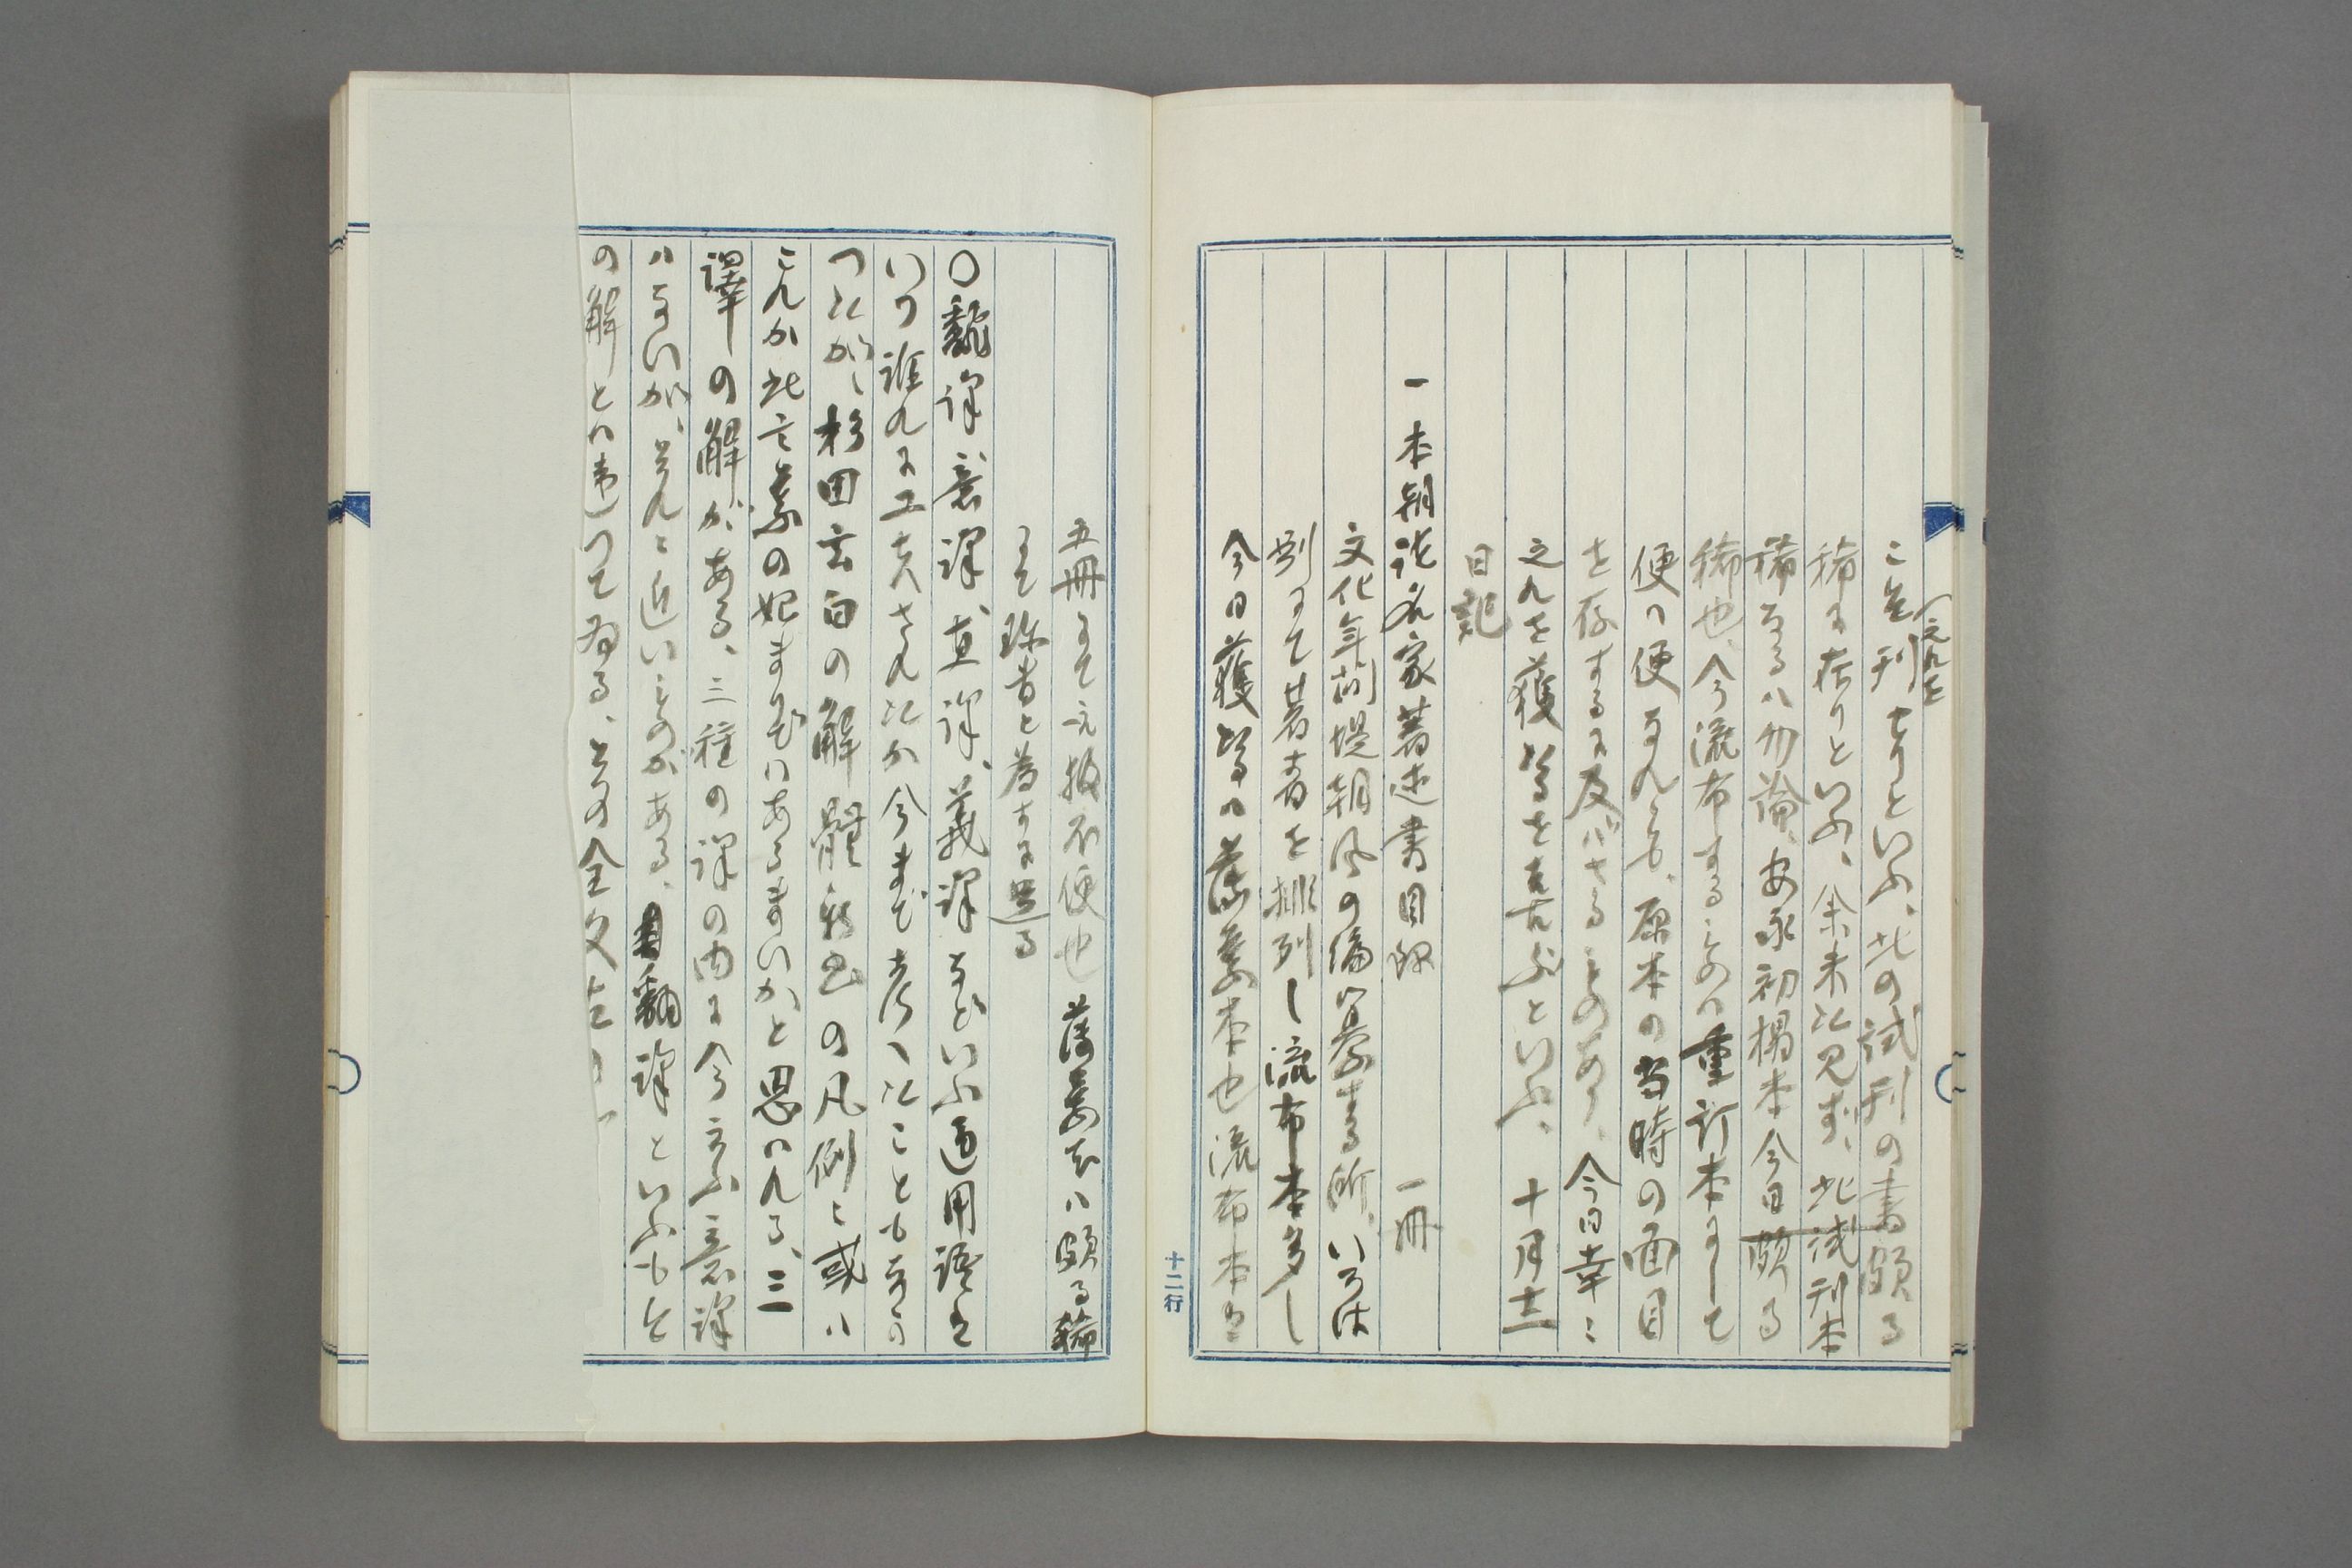 これを
こ先刊せりといふ、此の試刊の書頗る
稀に在りといふ、余未だ見ず、此試刊本
稀なるハ勿論、安永初搨本今日頗る
稀也、今流布するものハ重訂本にして
便ハ便なれども、原本の当時の面目
を存するに及バざるものあり、今日幸に
之れを獲むるを喜ぶといふ、十月十二
日記
一本朝諸名家著述書目録　一冊
文化年間堤朝風の編纂する所、いろは
別にて著者を排列し流布本多し
今日獲むるハ藁本也流布本は
五冊にて之披不便也藁本ハ頗る稀
にて珍書と為すに足る
〇飜訳、意訳、直訳、義訳などいふ通用語は
いつ誰れに工夫されたか今まで考へたこともなかつ
つたが、杉田玄白の解體新書の凡例に或ハ
これが此言葉の始まりではあるまいかと思はれる、三
譯の解がある、三種の訳の内に今云ふ意訳
ハないが、それに近いものがある、飜訳といふもと
の解とハ違つてゐる、その全文
十二行